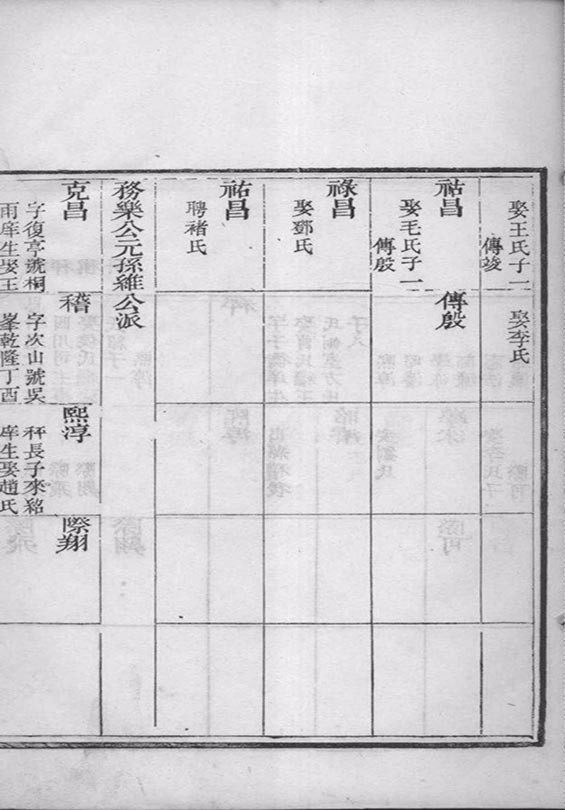 娶王氏子一
傳竣
娶李氏
祜昌
傳殷
娶毛氏子一
傳殷
祿昌
娶鄧氏
祐昌
聘褚氏
務樂公元孫維公派
克昌
稽
熙淳
際翔
字復亭號桐
雨庠生娶王
字次山號吳
峯乾隆丁酉
秤長子來紹
庠生娶趙氏